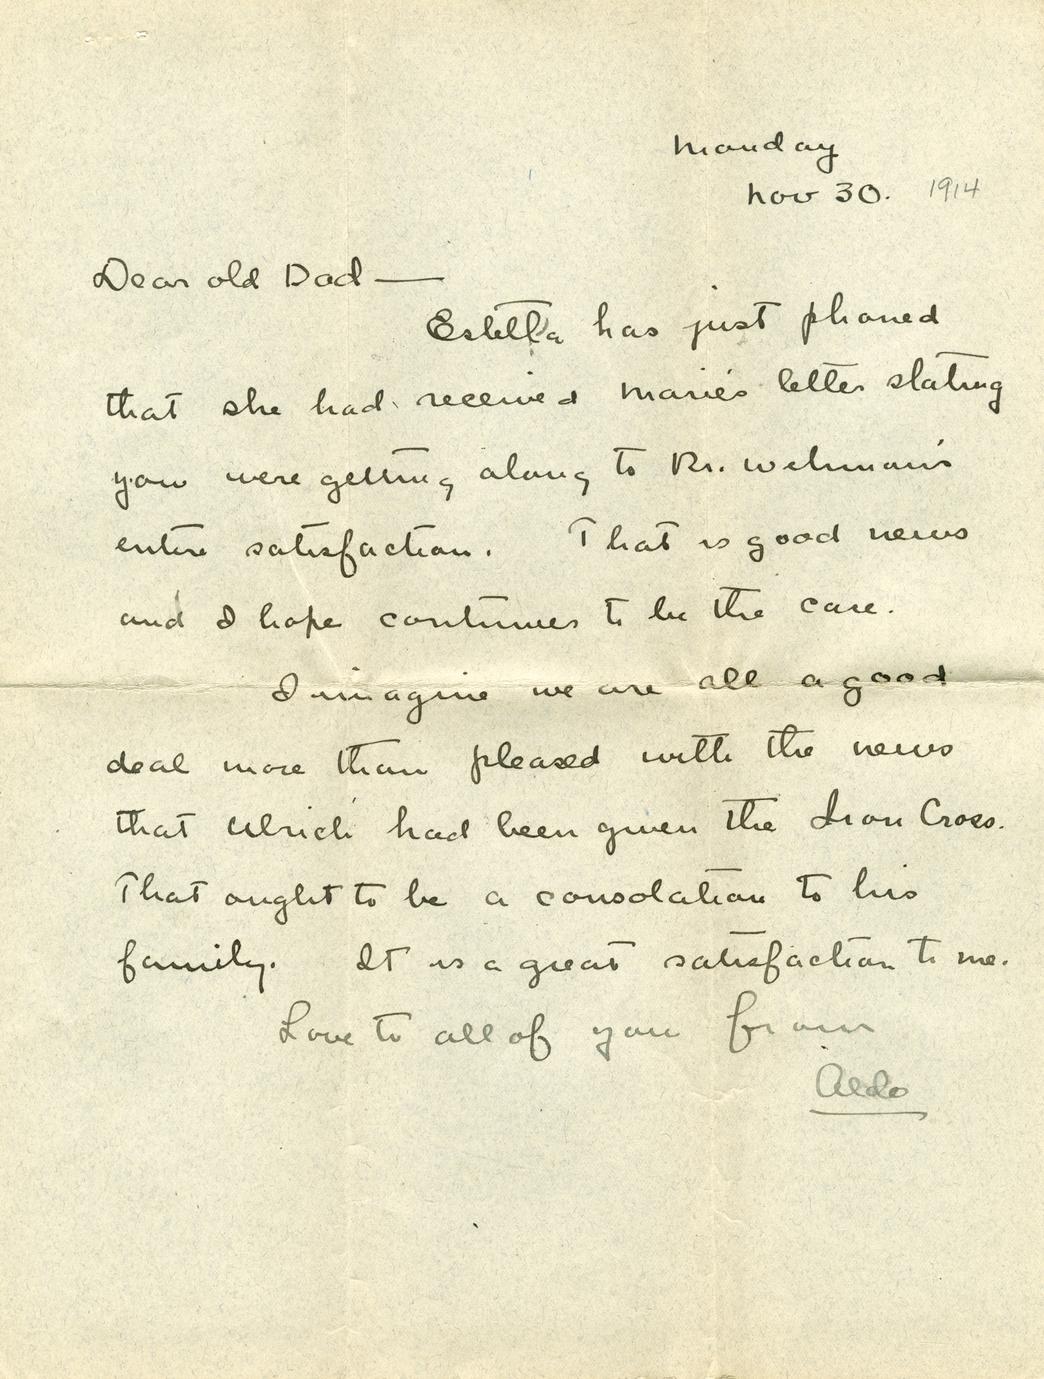 Monday
Nov 30. 1914
Dear old Dad —
Estella has just phoned
that she had received Marie's letter stating
you were getting along to Dr. Wehman's
entire satisfaction. That is good news
and I hope continues to be the case.
I imagine we are all a good
deal more than pleased with the news
that Ulrich had been given the Iron Cross.
That ought to be a consolation to his
family. It is a great satisfaction to me.
Love to all of you from
Aldo